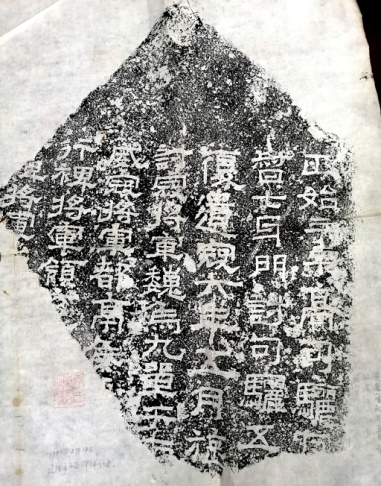 正始三年高句驪
督七牙門討句驪五
復遣寇六年五月旋
討寇將軍魏烏丸單于
威寇將軍都亭侯
行裨將軍領
裨將軍